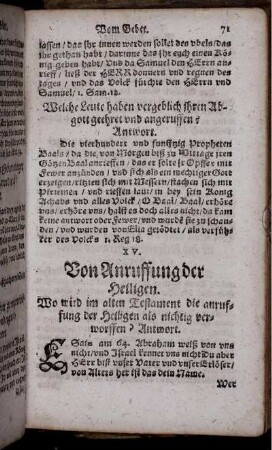 Vom Gebet. 71
lassen / das jhr innen werden sollet des vbels / das
jhr gethan habt / darinne das jhr euch einen Kö-
nig geben habt / Vnd da Samuel den HErrn an-
rieff / ließ der HERR donnern vnd regnen des
tages / vnd das Volck fürchte den HErrn vnd
Samuel / 1. Sam. 12.
Welche Leute haben vergeblich jhren Ab-
gott geehret vnd angeruffen?
Antwort.
Die vierhundert vnd funfftzig Propheten
Baals / da die / von Morgen biß zu Mittage jren
Götzen Baal anrieffen / das er solte jr Opffer mit
Fewer anzünden / vnd sich als ein mechtiger Gott
erzeigen / ritzten sich mit Messern / stachen sich mit
Pfriemen / vnd rieffen laut / in bey sein König
Achabs vnd alles Volck / O Baal / Baal / erhöre
vns / erhöre vns / halff es doch alles nicht / da kam
keine antwort oder Fewer / vnd wurde sie zu schan-
den / vnd wurden von Elia getödtet / als verführ-
ker des Volcks 1. Reg 18.
XV.
Von Anruffung der
Heiligen.
Wo wird im alten Testament die anruf-
fung der Heiligen als nichtig ver-
worffen? Antwort.
Esaiæ am 64. Abraham weiß von vns
nicht / vnd Israel kennet vns nicht Du aber
HErr bist vnser Vater vnd vnser Erlöser /
von Alters her ist das dein Name.
Wer